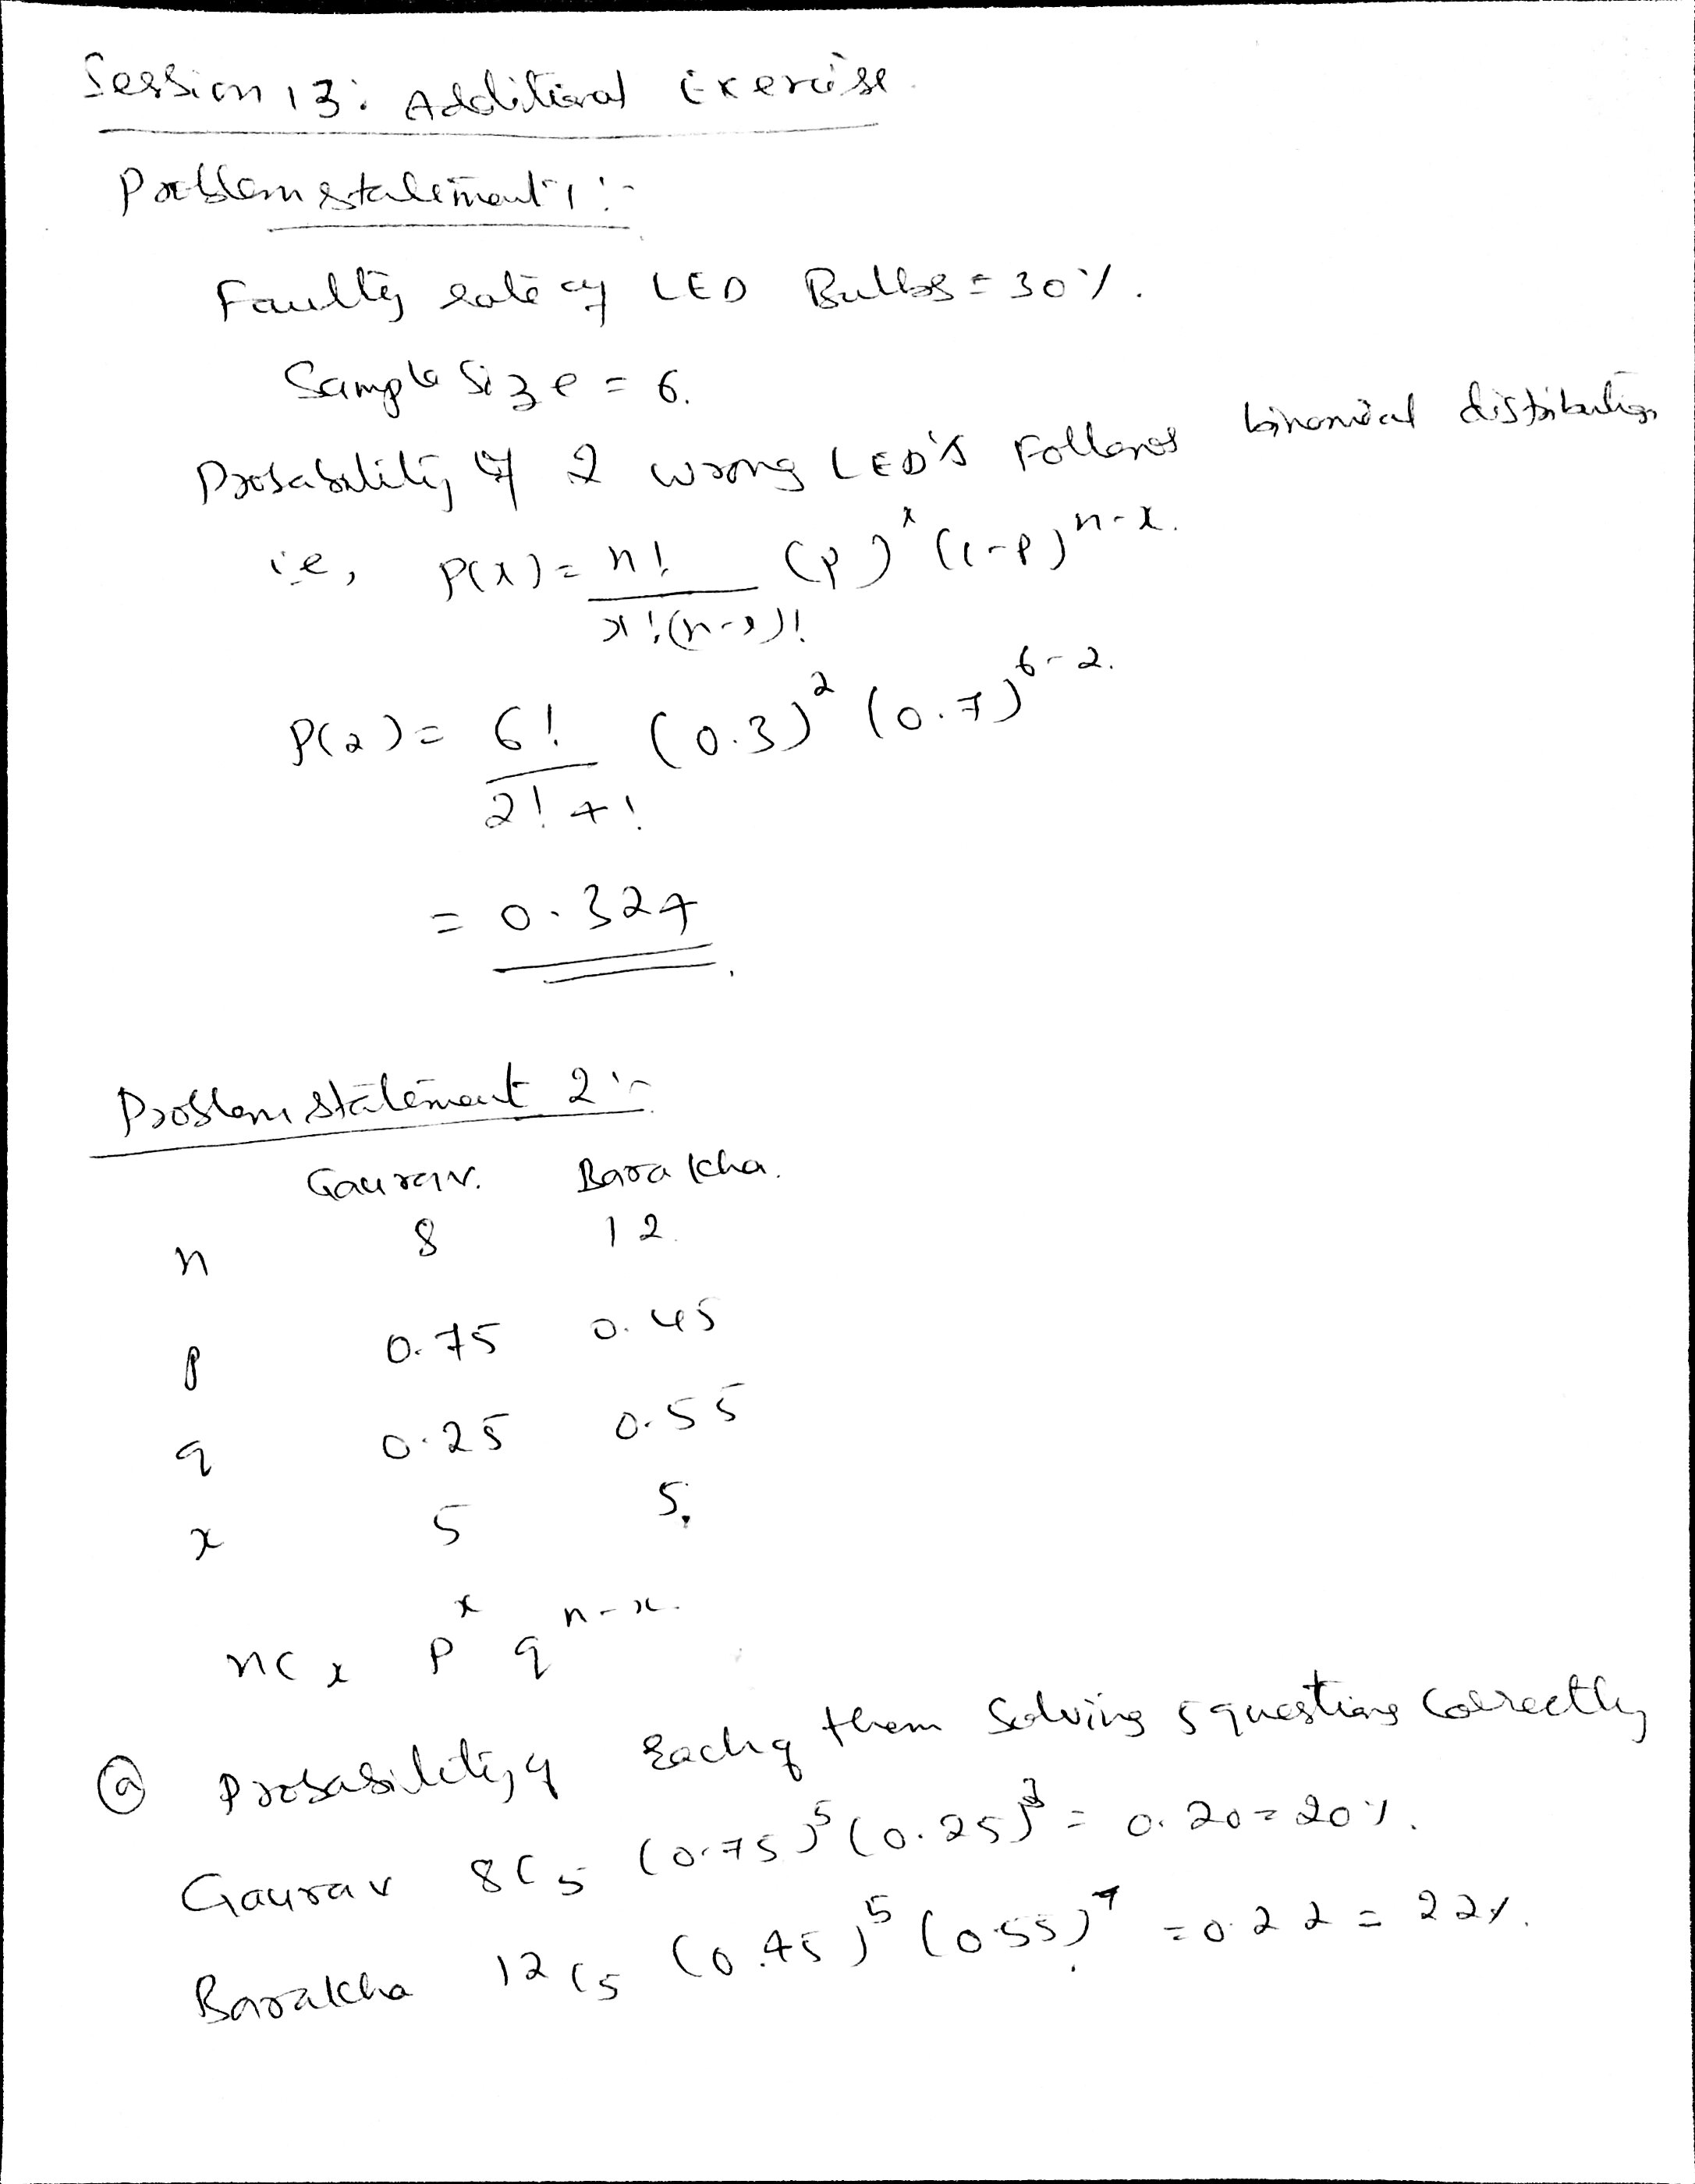 Session 13: Additional Exercise.
Problem statement 1:-
Faulty rate of LED Bulbs = 30%.
Sample Size = 6.
Probability of 2 wrong LED's Follows binomial distribution
i.e, P(x) = n! / x!(n-x)! (p)^x (1-p)^n-x.
P(2) = 6! / 2! 4! (0.3)^2 (0.7)^6-2.
= 0.324
Problem statement 2:-
Gaurav. Barakha.
n 8 12.
p 0.75 0.45
q 0.25 0.55
x 5 5.
nCx p^x q^n-x.
(a) Probability of Each of them Solving 5 questions Correctly
Gaurav 8C5 (0.75)^5 (0.25)^3 = 0.20 = 20%.
Barakha 12C5 (0.45)^5 (0.55)^7 = 0.22 = 22%.